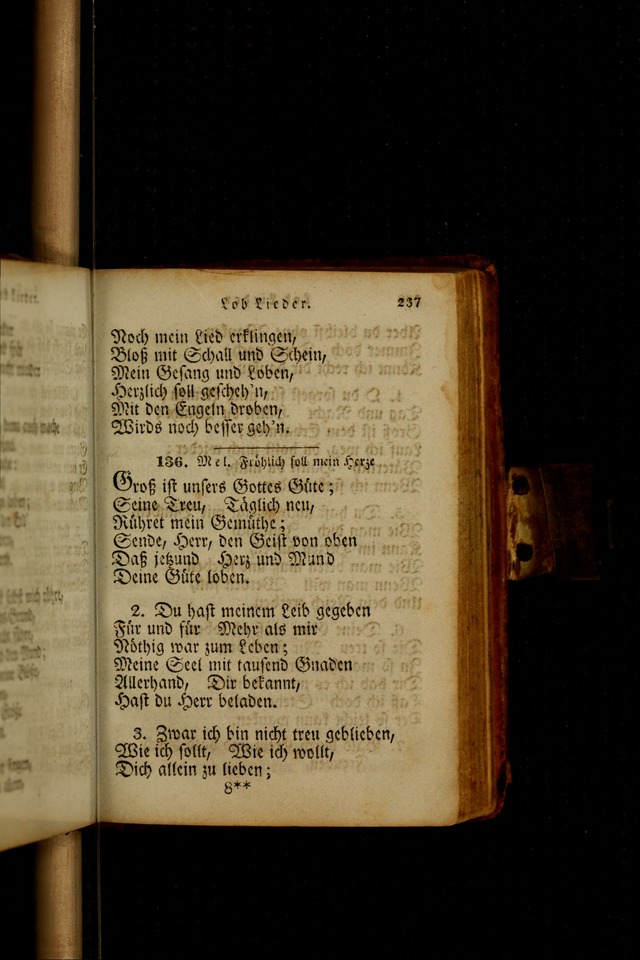 Lob Lieder. 237
Noch mein Lied erklingen,
Bloß mit Schall und Schein,
Mein Gesang und Loben,
Herzlich soll gescheh'n,
Mit den Engeln droben,
Wirds noch besser geh'n.
136. Mel. Fröhlich soll mein Herze
Groß ist unsers Gottes Güte;
Seine Treu, Täglich neu,
Rühret mein Gemüthe;
Sende, Herr, den Geist von oben
Daß jetzund Herz und Mund
Deine Güte loben.
2. Du hast meinem Leib gegeben
Für und für Mehr als mir
Nöthig war zum Leben;
Meine Seel mit tausend Gnaden
Allerhand, Dir bekannt,
Hast du Herr beladen.
3. Zwar ich bin nicht treu geblieben,
Wie ich sollt, Wie ich wollt,
Dich allein zu lieben;
8**